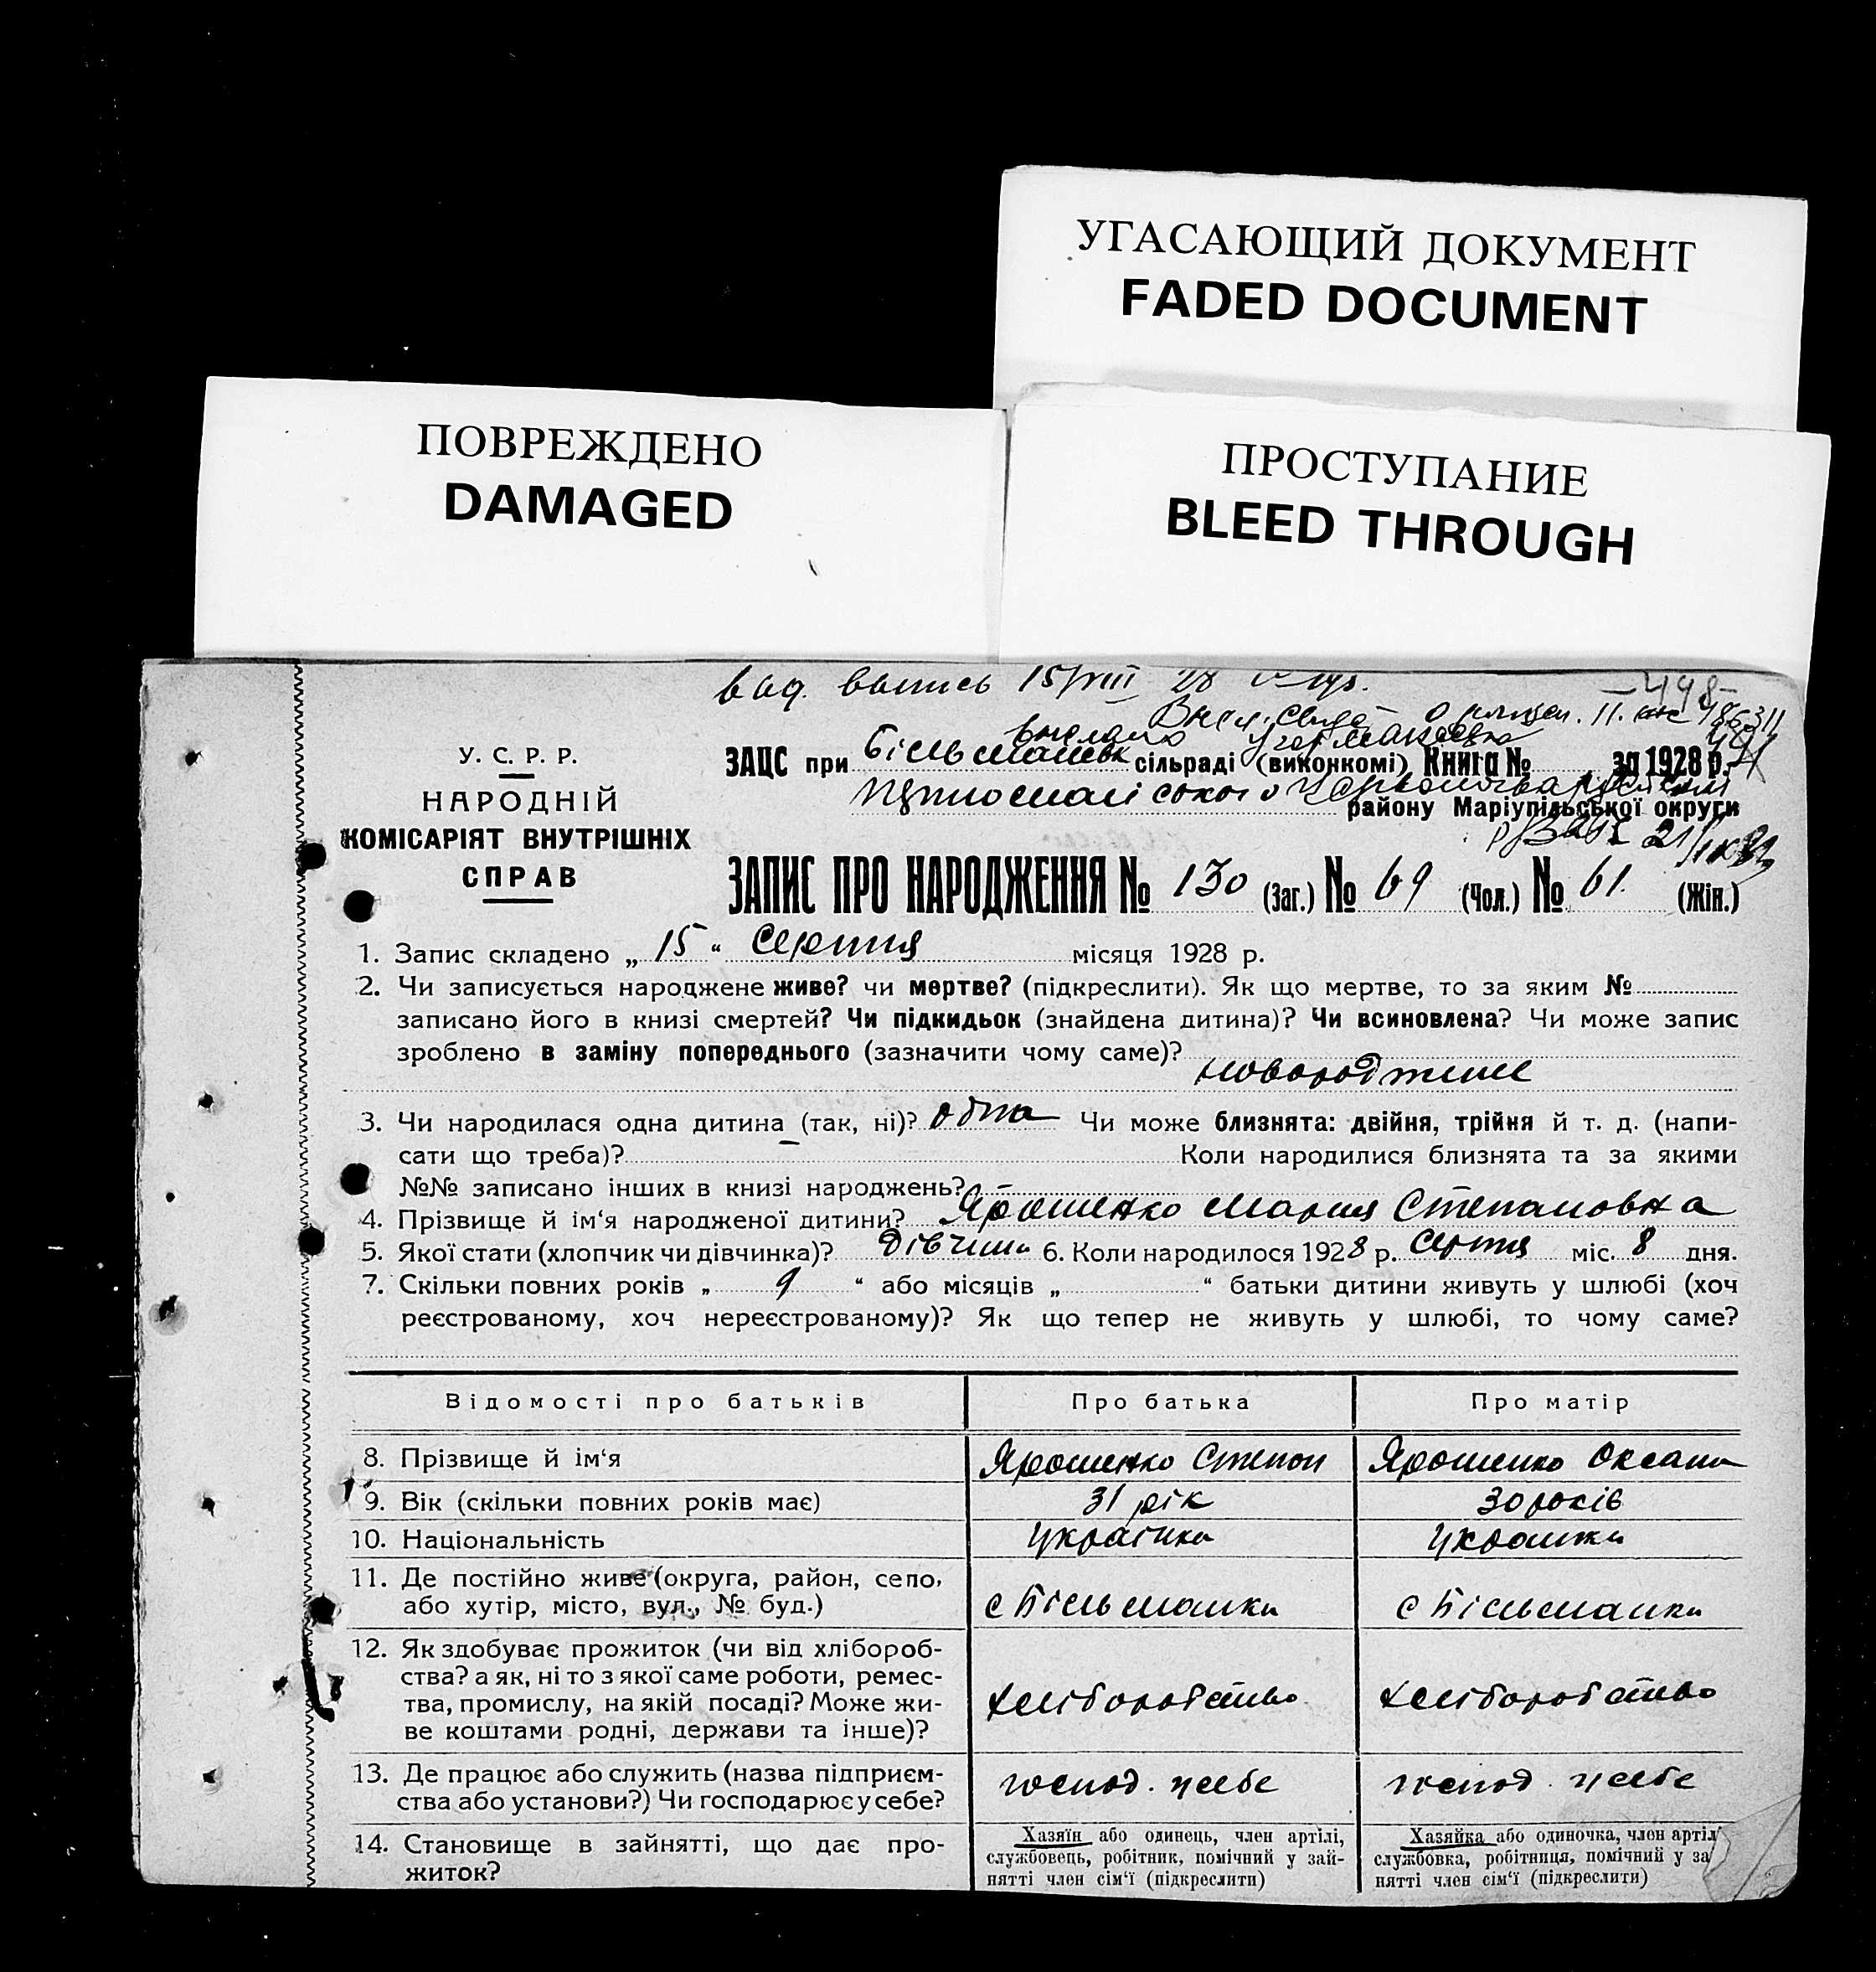 УГАСАЮЩИЙ ДОКУМЕНТ
FADED DOCUMENT
ПОВРЕЖДЕНО
DAMAGED
ПРОСТУПАНИЕ
BLEED THROUGH
вид. выпись 15/VIII 28
У. С. Р. Р.
НАРОДНІЙ
КОМІСАРІЯТ ВНУТРІШНІХ
СПРАВ
ЗАЦС при Більманськ сільраді (виконкомі) Книга № за 1928 р.
району Маріупільської округи
ЗАПИС ПРО НАРОДЖЕННЯ № 130 (Заг.) № 69 (Чол.) № 61 (Жін.)
1. Запис складено „ 15 “ Серпня місяця 1928 р.
2. Чи записується народжене живе? чи мертве? (підкреслити). Як що мертве, то за яким №
записано його в книзі смертей? Чи підкидьок (знайдена дитина)? Чи всиновлена? Чи може запис
зроблено в заміну попереднього (зазначити чому саме)?
новороджене
3. Чи народилася одна дитина (так, ні)? одна Чи може близнята: двійня, трійня й т. д. (напи-
сати що треба)? Коли народилися близнята та за якими
№№ записано інших в книзі народжень?
4. Прізвище й ім‘я народженої дитини? Ярошенко Мария Степановна
5. Якої стати (хлопчик чи дівчинка)? Дівчина 6. Коли народилось 1928 р. Серпня міс. 8 дня.
7. Скільки повних років „ 9 “ або місяців „ “ батьки дитини живуть у шлюбі (хоч
реєстрованому, хоч нереєстрованому)? Як що тепер не живуть у шлюбі, то чому саме?
Відомості про батьків Про батька Про матір
8. Прізвище й ім‘я Ярошенко Степан Ярошенко Оксана
9. Вік (скільки повних років має) 31 рік 30 років
10. Національність українка українка
11. Де постійно живе (округа, район, село,
або хутір, місто, вул., № буд.) с Більманка с Більманка
12. Як здобуває прожиток (чи від хлібороб-
ства? а як, ні то з якої саме роботи, ремес-
тва, промислу, на якій посаді? Може жи-
ве коштами родні, держави та інше)? хліборобство хліборобство
13. Де працює або служить (назва підприєм-
ства або установи?) Чи господарює у себе? господ. у себе господ. у себе
14. Становище в зайнятті, що дає про-
житок?
Хазяїн або одинець, член артілі,
службовець, робітник, помічний у зай-
нятті член сім‘ї (підкреслити)
Хазяйка або одиночка, член артіл
службовка, робітниця, помічний у за
нятті член сім‘ї (підкреслити)